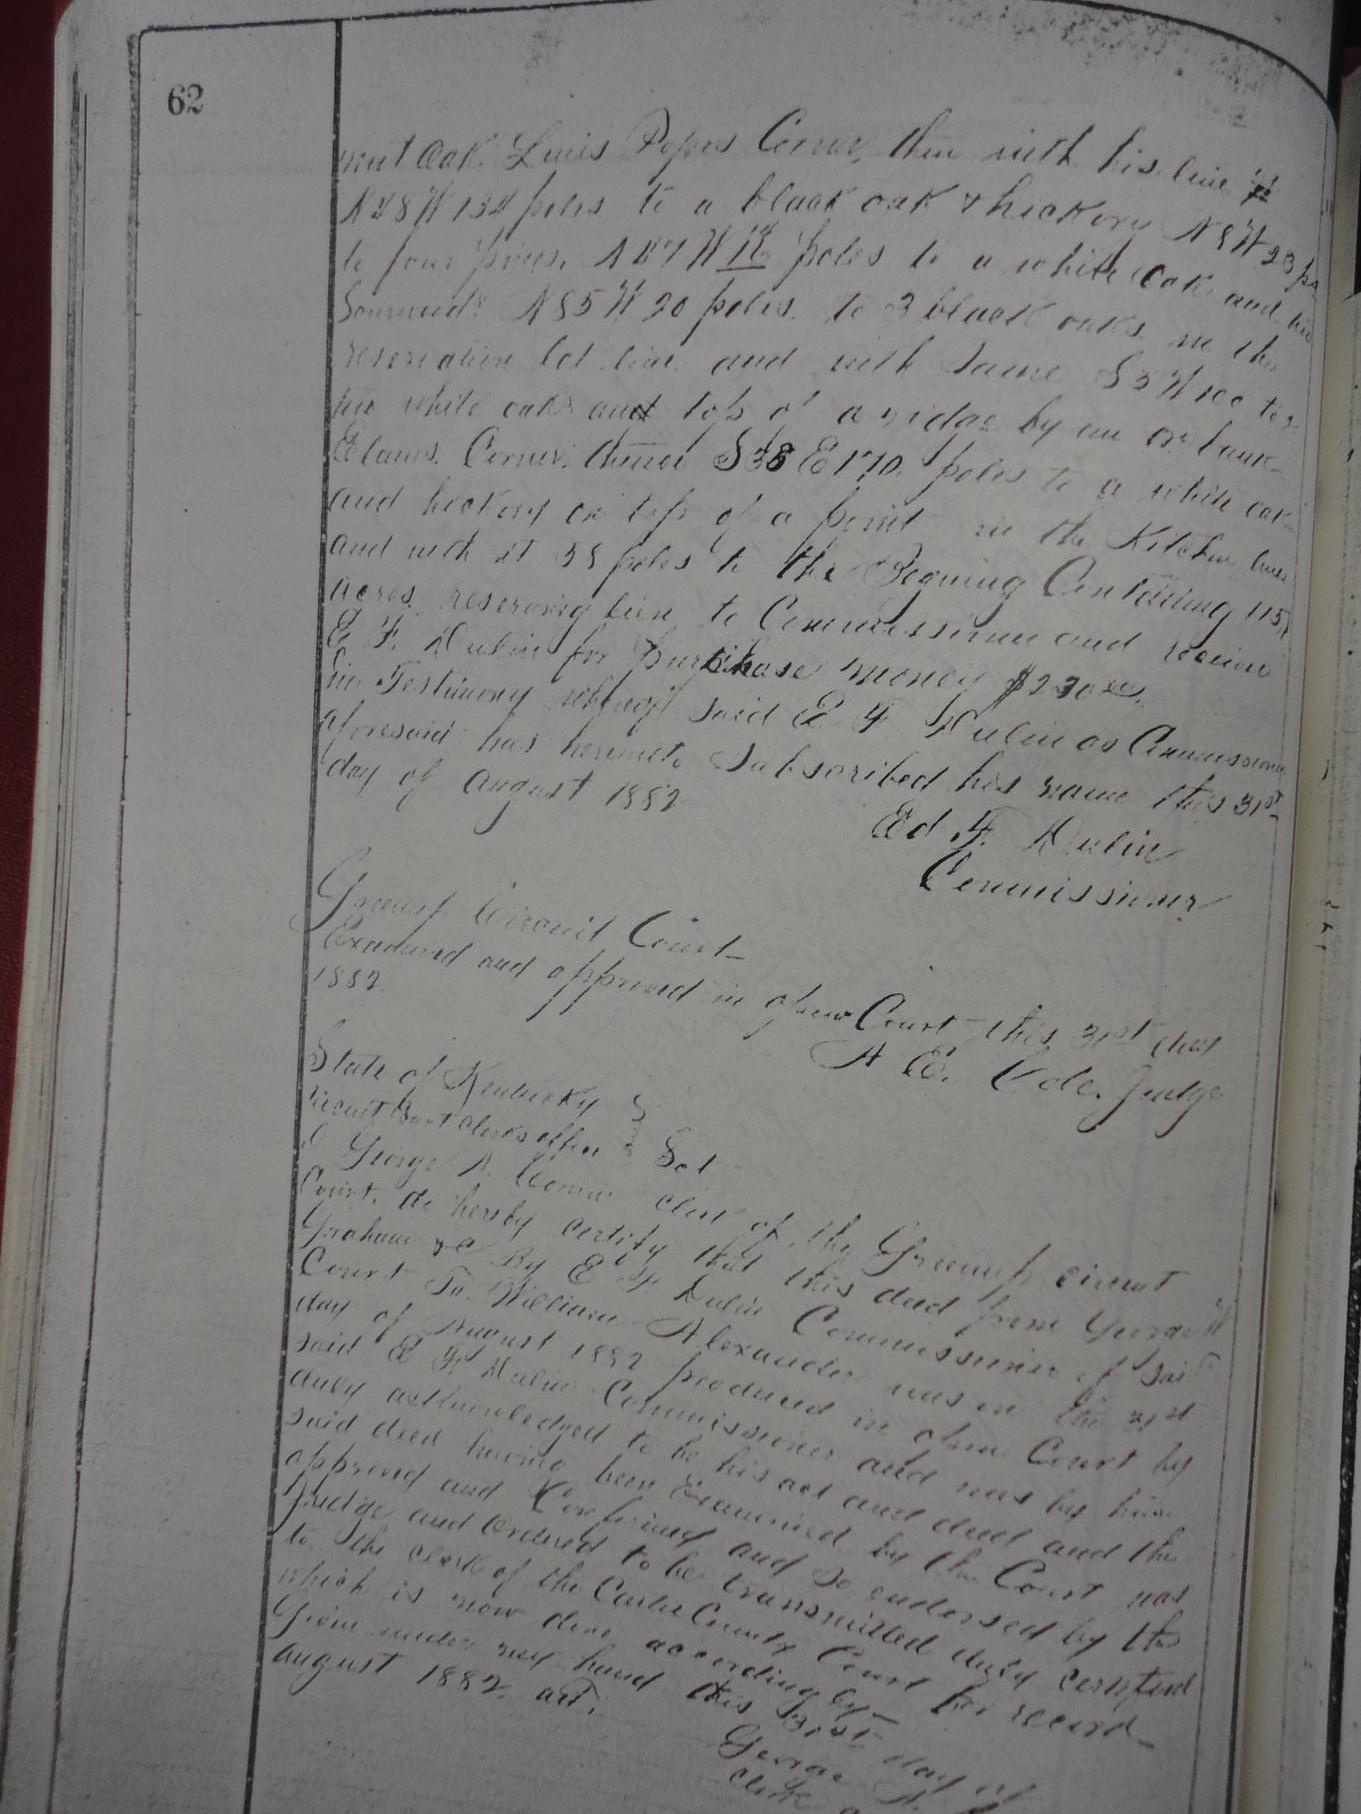 62
nut Oak. Luis Popes Corner, then with his line
N 28 W 134 poles to a black oak & hickory N 9 W 23 ps
to four pines, N 87 W 12 poles to a white oak and two
Sourwoods N 85 W 20 poles to 3 black oaks in the
reservation lot line and with same S 5 W 100 to
two white oaks and top of a ridge by an or bank
Elams Corner. thence S 38 E 170 poles to a white oak
and hickory on top of a point in the Kitchen line
and with it 58 poles to the Begining Containing 115
acres, reserving lien to Commissioner and
E. F. Dulin for purchase money $230
In Testimony whereof said E F Dulin as Commissioner
aforesaid has hereunto Subscribed his name this 31st
day of august 1882
Ed F. Dulin
Commissioner
Greenup Circuit Court
Examined and approved in open Court this 31st day
1882
A E. Cole, Judge
State of Kentucky
Circuit Court Clerks office Sct
I George A. clerk of the Greenup circuit
Court, do hereby certify that this deed from George W
Graham &c By E F. Dulin Commissioner of said
Court To William Alexander was on the 31st
day of August 1882 produced in open Court by
said E F. Dulin Commissioner and was by him
duly acknowledged to be his act and deed and the
said deed having been Examined by the Court was
approved and Confirmed and so endorsed by the
Judge and Ordered to be transmitted duly certified
to the clerk of the Carter County Court for record
which is now done accordingly
Given under my hand this 31st day of
august 1882. att.
George A.
Clerk